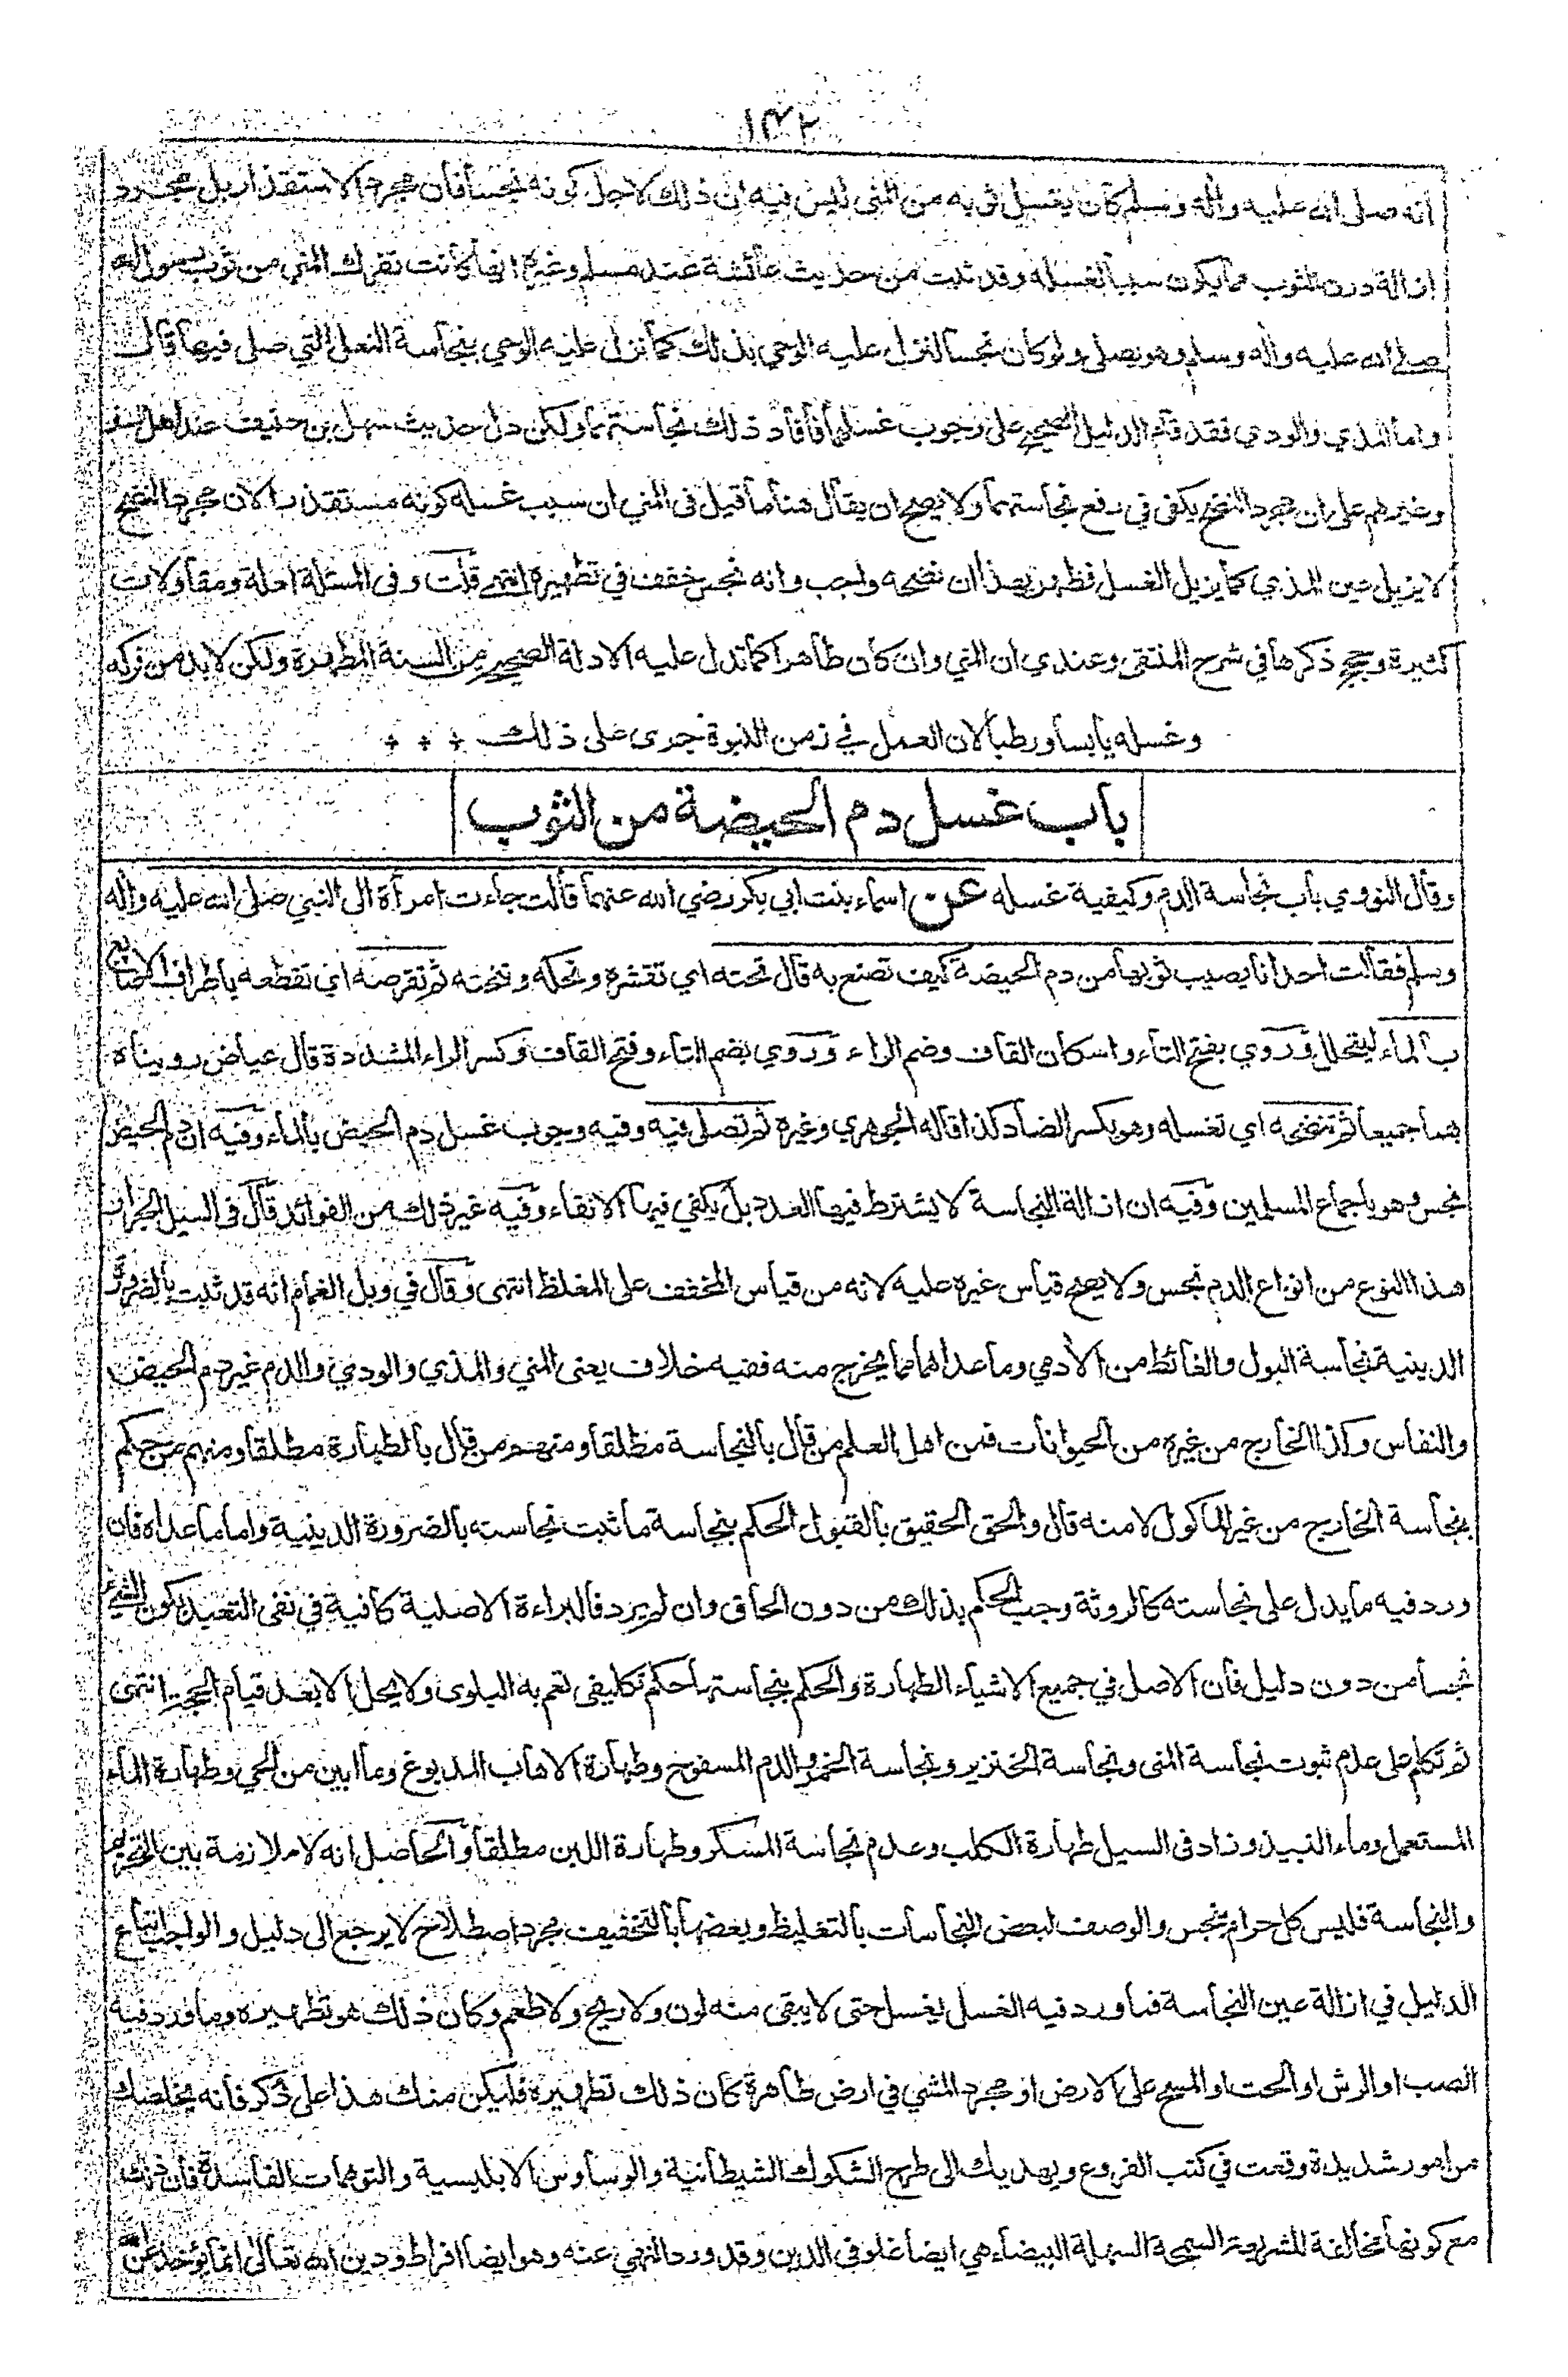 ١٤٢
انه صلى الله عليه واله وسلم كان يغسل ثوبه من المني ليس فيه ان ذلك لاجل كونه نجسا فان مجرد الاستقذار بل مجرد
ازالة درن الثوب مما يكون سببا لغسله وقد ثبت من حديث عائشة عند مسلم وغيره انها كانت تفرك المني من ثوب رسول الله
صلى الله عليه واله وسلم وهو يصلي ولو كان نجسا لنزل عليه الوحي بذلك كما نزل عليه الوحي بنجاسة النعل التي صلى فيها قال
واما المذي والودي فقد قام الدليل الصحيح على وجوب غسلهما فافاد ذلك نجاستهما ولكن دل حديث سهل بن حنيف عند اهل السنن
وغيرهم على ان مجرد النضح يكفي في رفع نجاستهما ولا يصح ان يقال هنا ما قيل في المني ان سبب غسله كونه مستقذرا لان مجرد النضح
لا يزيل عين المذي كما يزيل الغسل فظهر بهذا ان نضحه واجب وانه نجس خفف في تطهيره انتهى قلت وفى المسئلة ادلة ومقاولات
كثيرة وحجج ذكرها في شرح المنتقى وعندي ان المني وان كان طاهرا كما تدل عليه الادلة الصحيحة من السنة المطهرة ولكن لابد من فركه
وغسله يابسا ورطبا لان العمل في زمن النبوة جرى على ذلك
باب غسل دم الحيضة من الثوب
وقال النووي باب نجاسة الدم وكيفية غسله عن اسماء بنت ابي بكر رضي الله عنهما قالت جاءت امرأة الى النبي صلى الله عليه واله
وسلم فقالت احدانا يصيب ثوبها من دم الحيضة كيف تصنع به قال تحته اي تقشره وتحكه وتنحته ثم تقرصه اي تقطعه باطراف الاصابع
بالماء ليتحلل وروي بفتح التاء واسكان القاف وضم الراء وروي بضم التاء وفتح القاف وكسر الراء المشددة قال عياض رويناه
بهما جميعا ثم تنضحه اي تغسله وهو بكسر الضاد كذا قاله الجوهري وغيره ثم تصلي فيه وفيه وجوب غسل دم الحيض بالماء وفيه ان دم الحيض
نجس وهو باجماع المسلمين وفيه ان ازالة النجاسة لا يشترط فيها العدد بل يكفي فيها الانقاء وفيه غير ذلك من الفوائد قال في السيل الجرار
هذا النوع من انواع الدم نجس ولا يصح قياس غيره عليه لانه من قياس المخفف على المغلظ انتهى وقال في وبل الغمام انه قد ثبت بالضرورة
الدينية نجاسة البول والغائط من الأدمي وما عداهما مما يخرج منه ففيه خلاف يعنى المني والمذي والودي والدم غير دم الحيض
والنفاس وكذا الخارج من غيره من الحيوانات فمن اهل العلم من قال بالنجاسة مطلقا ومنهم من قال بالطهارة مطلقا ومنهم من حكم
بنجاسة الخارج من غير الماكول لا منه قال والحق الحقيق بالقبول الحكم بنجاسة ما ثبت نجاسته بالضرورة الدينية واما ما عداه فان
ورد فيه ما يدل على نجاسته كالروثة وجب الحكم بذلك من دون الحاق وان لم يرد فالبراءة الاصلية كافية في نفى التعبد بكون الشيء
نجسا من دون دليل فان الاصل في جميع الاشياء الطهارة والحكم بنجاستها حكم تكليفي تعم به البلوى ولا يحل الا بعد قيام الحجة انتهى
ثم تكلم على عدم ثبوت نجاسة المنى ونجاسة الخنزير ونجاسة الخمر والدم المسفوح وطهارة الاهاب المدبوغ وما ابين من الحي وطهارة الماء
المستعمل وماء النبيذ وزاد فى السيل طهارة الكلب وعدم نجاسة المسكر وطهارة اللبن مطلقا والحاصل انه لا ملازمة بين التحريم
والنجاسة فليس كل حرام بنجس والوصف لبعض النجاسات بالتغليظ وبعضها بالتخفيف مجرد اصطلاح لا يرجع الى دليل والواجب اتباع
الدليل في ازالة عين النجاسة فما ورد فيه الغسل يغسل حتى لا يبقى منه لون ولا ريح ولا طعم وكان ذلك هو تطهيره وما ورد فيه
الصب او الرش او الحت او المسح على الارض او مجرد المشي في ارض طاهرة كان ذلك تطهيره فليكن منك هذا على ذكر فانه يخلصك
من امور شديدة وقعت في كتب الفروع ويهديك الى طرح الشكوك الشيطانية والوساوس الابليسية والتوهمات الفاسدة فان ذلك
مع كونها مخالفة للشريعة السمحة السهلة البيضاء هي ايضا غلو في الدين وقد ورد النهي عنه وهو ايضا افراط ودين الله تعالى انما يؤخذ عن